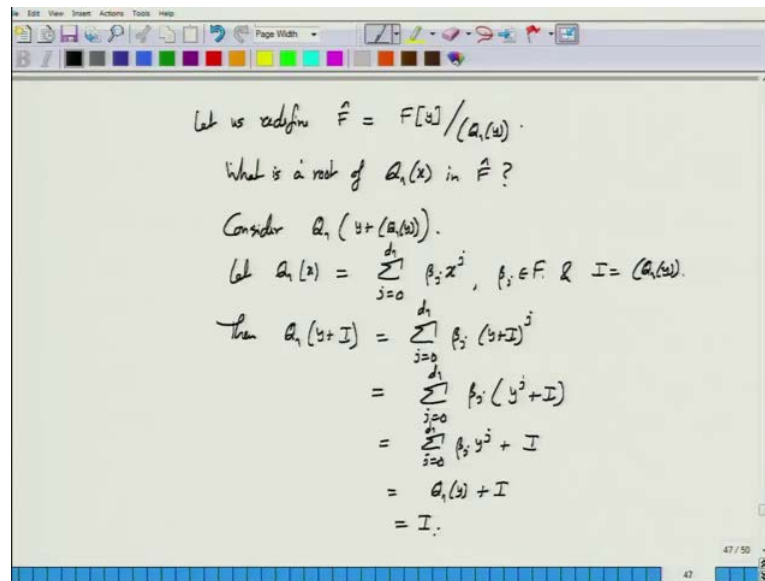 Edit View Insert Actions Tools Help
Page Width
B I
Let us redefine F̂ = F[y]/(Q₁(y)).
What is a root of Q₁(x) in F̂ ?
Consider Q₁(y+(Q₁(y))).
Let Q₁(x) = ∑_{j=0}^{d₁} β_j x^j, β_j ∈ F. & I = (Q₁(y)).
Then Q₁(y+I) = ∑_{j=0}^{d₁} β_j (y+I)^j
= ∑_{j=0}^{d₁} β_j (y^j + I)
= ∑_{j=0}^{d₁} β_j y^j + I
= Q₁(y) + I
= I.
47 / 50
47